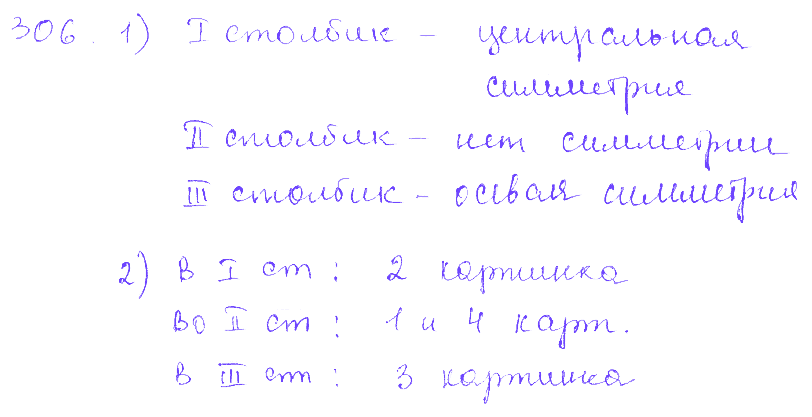 306. 1) I столбик – центральная
симметрия
II столбик – нет симметрии
III столбик – осевая симметрия
2) В I ст: 2 картинка
Во II ст: 1 и 4 карт.
В III ст: 3 картинка